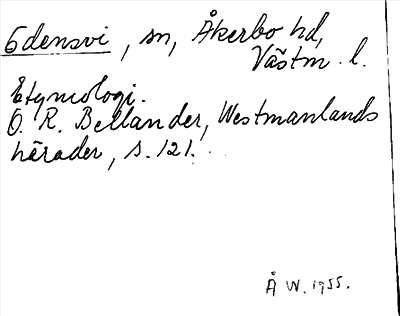 Edensvi, sn, Åkerbo hd,
Västm. l.
Etymologi.
O. R. Bellander, Westmanlands
härader, s. 121.
Å W. 1955.